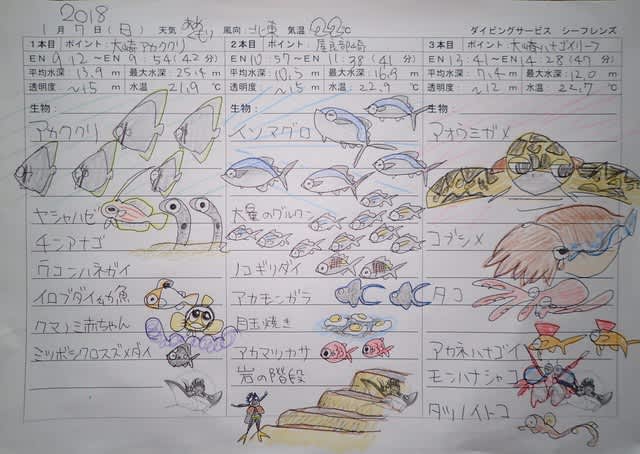 2018
1月7日(日) 天気 あめ くもり 風向 北東 気温 22℃ ダイビングサービス シーフレンズ
1本目 ポイント：大崎アカククリ
EN 9:12 〜EN 9:54 (42分)
平均水深：13.9m 最大水深：25.4m
透明度 〜15m 水温：21.9℃
生物：
アカククリ
ヤシャハゼ
チンアナゴ
ウコンハネガイ
イロブダイ幼魚
クマノミ赤ちゃん
ミツボシクロスズメダイ
2本目 ポイント：屋良部崎
EN 10:57 〜EN 11:38 (41分)
平均水深：10.5m 最大水深：16.9m
透明度 〜15m 水温：22.9℃
生物：
イソマグロ
大量のグルクン
ノコギリダイ
アカモンガラ
目玉焼き
アカマツカサ
岩の階段
3本目 ポイント：大崎ハナゴイリーフ
EN 13:41 〜EN 14:28 (47分)
平均水深：7.4m 最大水深：12.0m
透明度 〜12m 水温：22.7℃
生物：
アオウミガメ
コブシメ
タコ
アカネハナゴイ
モンハナシャコ
タツノイトコ